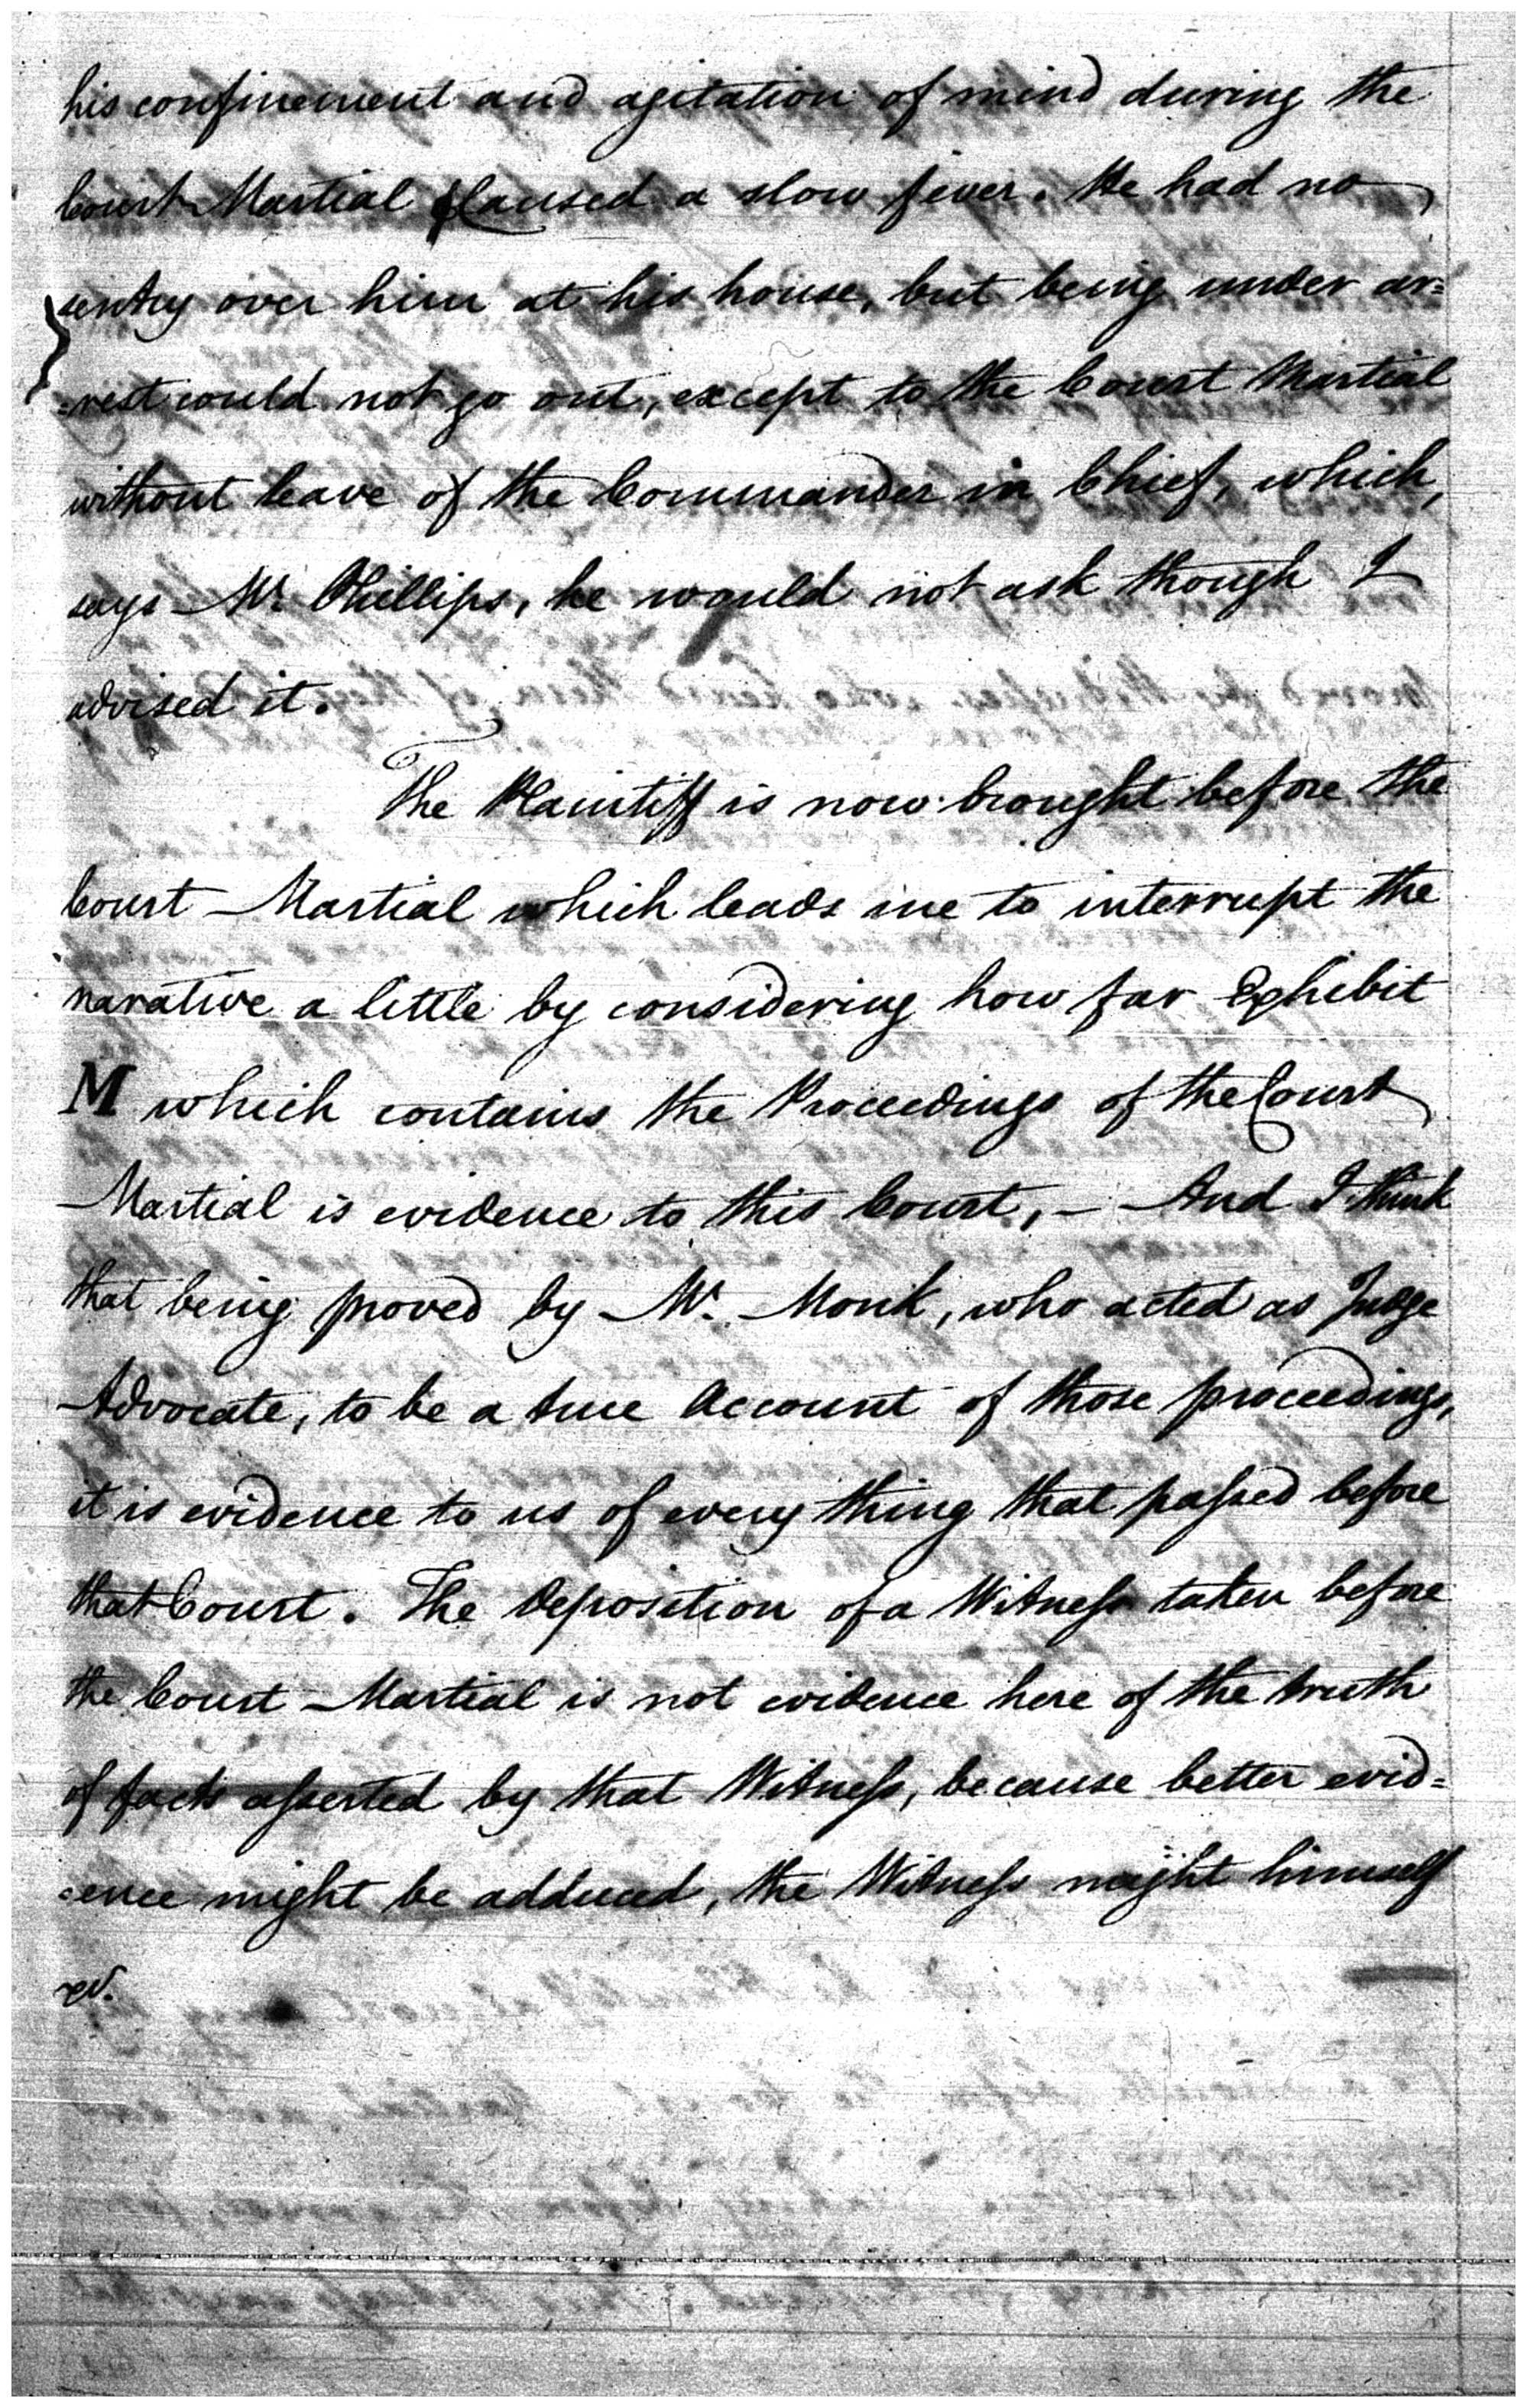 his confinement and agitation of mind during the
Court Martial Caused a slow fever. He had no
sentry over him at his house, but being under ar=
=rest could not go out, except to the Court Martial
without leave of the Commander in Chief, which,
says Mr. Phillips, he would not ask though I
advised it.
The Plaintiff is now brought before the
Court Martial which leads me to interrupt the
narative a little by considering how far Exhibit
M which contains the Proceedings of the Court
Martial is evidence to this Court, – And I think
that being proved by Mr. Monk, who acted as Judge
Advocate, to be a true Account of those proceedings,
it is evidence to us of every thing that paſsed before
that Court. The Deposition of a Witneſs taken before
the Court Martial is not evidence here of the truth
of facts aſserted by that Witneſs, because better evid=
=ence might be adduced, the Witneſs might himself